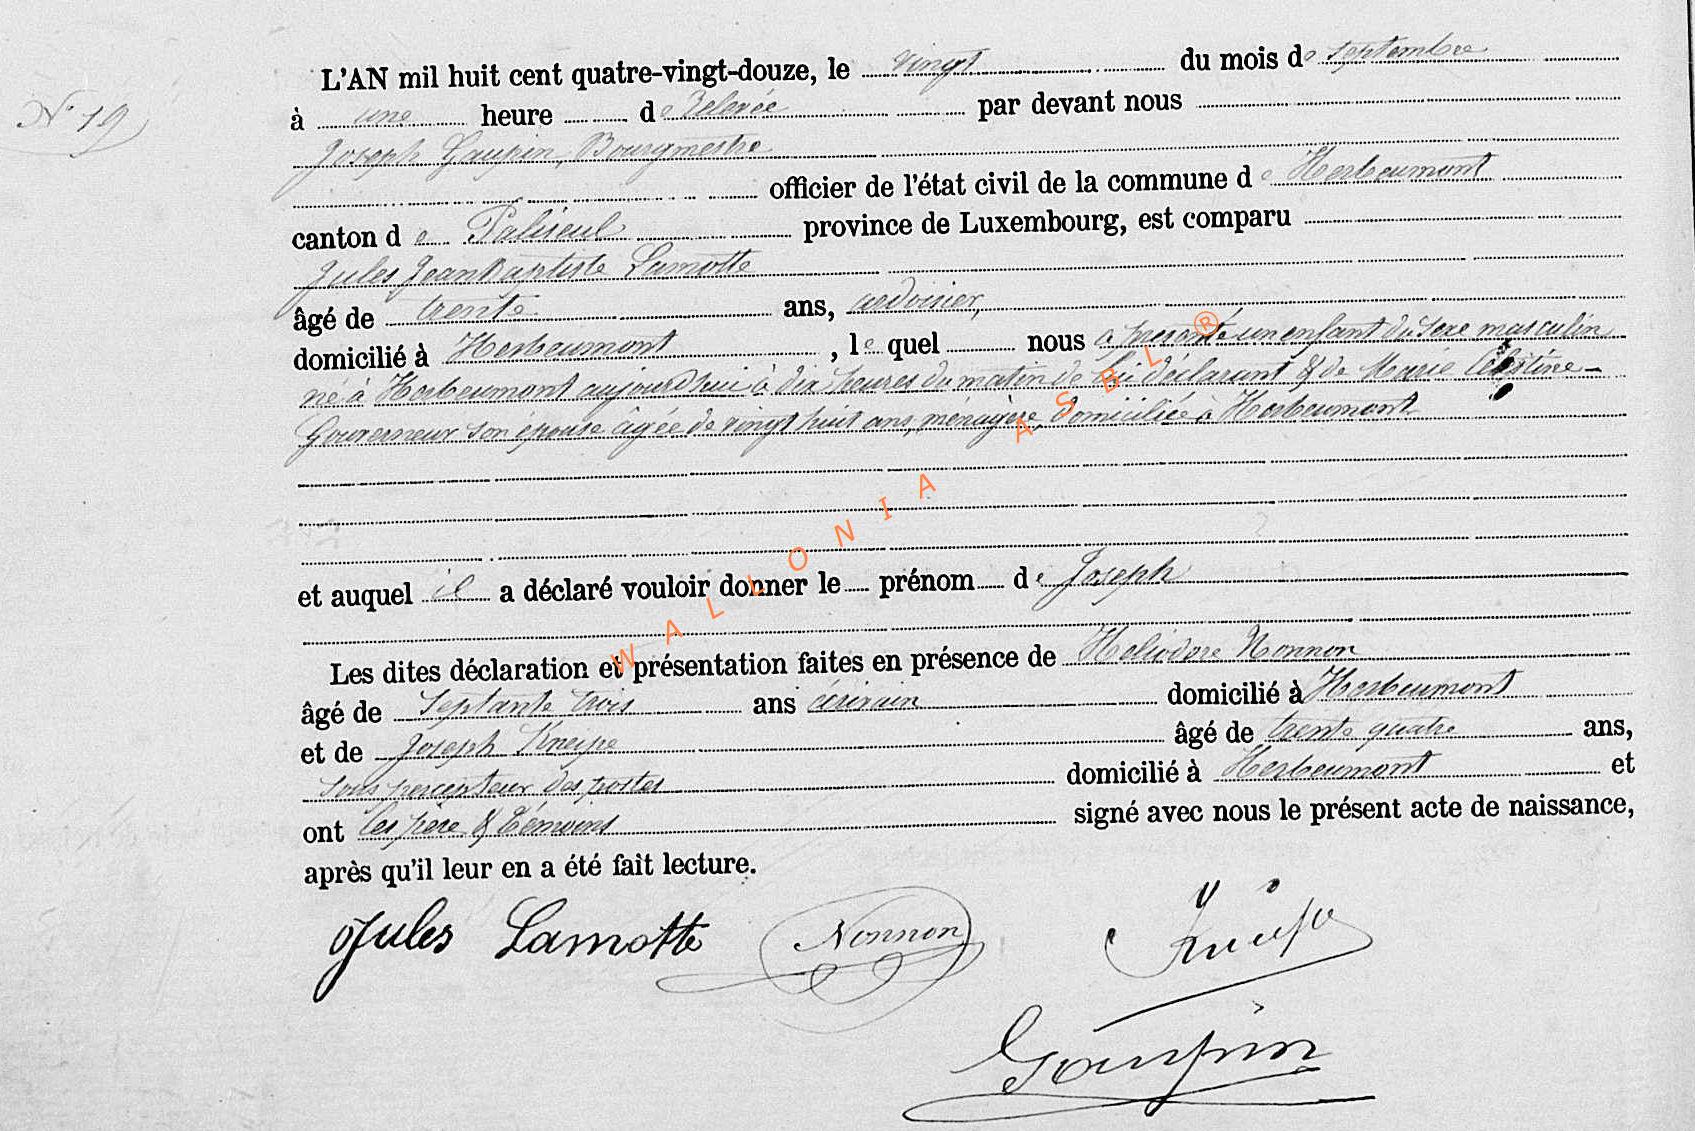 N° 19
L'AN mil huit cent quatre-vingt-douze, le vingt du mois de septembre
à une heure de Relevée par devant nous
Joseph Goupin, Bourgmestre
officier de l'état civil de la commune de Herbeumont
canton de Paliseul province de Luxembourg, est comparu
Jules Jean Baptiste Lamotte
âgé de trente ans, ardoisier,
domicilié à Herbeumont, le quel nous a présenté un enfant du sexe masculin
né à Herbeumont aujourd'hui à dix heures du matin de lui déclarant & de Marie Célestine
Gouverneur son épouse âgée de vingt huit ans, ménagère, domiciliée à Herbeumont
et auquel il a déclaré vouloir donner le prénom de Joseph
Les dites déclaration et présentation faites en présence de Héliodore Nonnon
âgé de septante trois ans écrivain domicilié à Herbeumont
et de Joseph Kneipe âgé de trente quatre ans,
sous percepteur des postes domicilié à Herbeumont et
ont les père & témoins signé avec nous le présent acte de naissance,
après qu'il leur en a été fait lecture.
Jules Lamotte Nonnon Kneipe
Goupin
WALLONIA ASBL ®